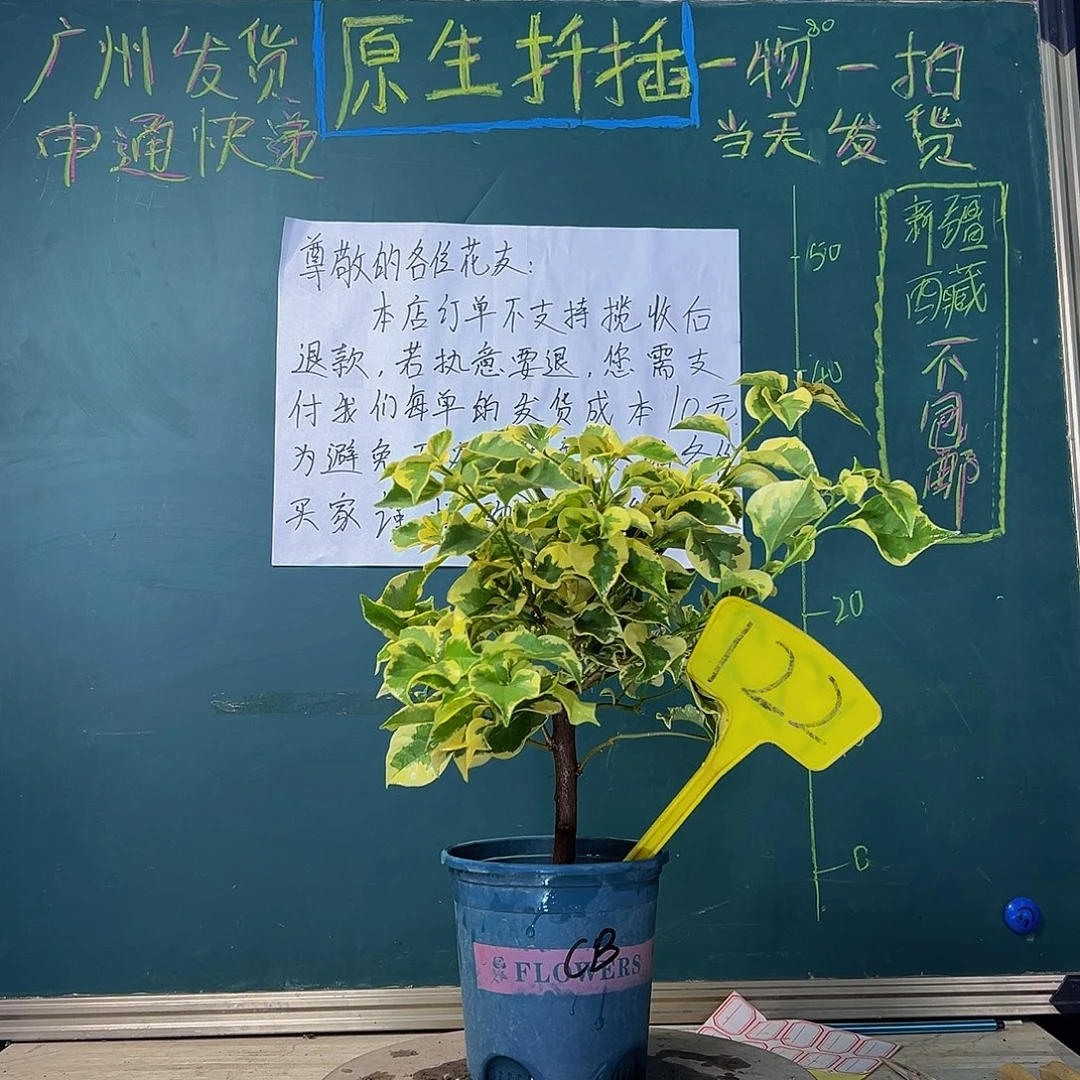 广州发货
申通快递
原生扦插
一物一拍
当天发货
新疆
西藏
不同邮
尊敬的各位花友：
本店订单不支持揽收后
退款，若执意要退，您需支
付我们每单的发货成本10元
为避免
买家
80
50
40
20
0
FLOWERS
CB